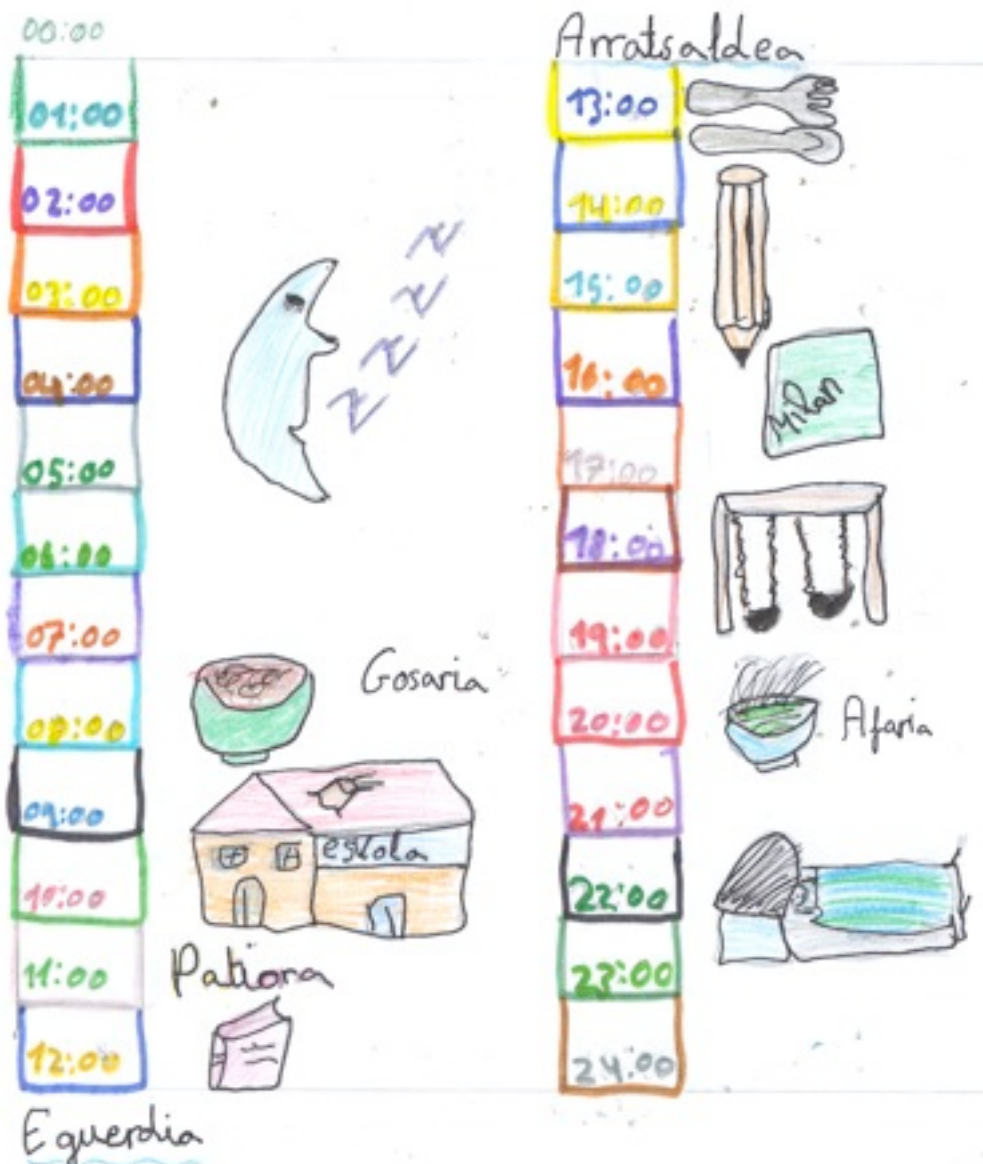 00:00
01:00
02:00
03:00
04:00
05:00
06:00
07:00
08:00
09:00
10:00
11:00
12:00
Eguerdia
z z z z
Gosaria
eskola
Patiora
Arratsaldea
13:00
14:00
15:00
16:00
17:00
18:00
19:00
20:00
21:00
22:00
23:00
24:00
Afaria